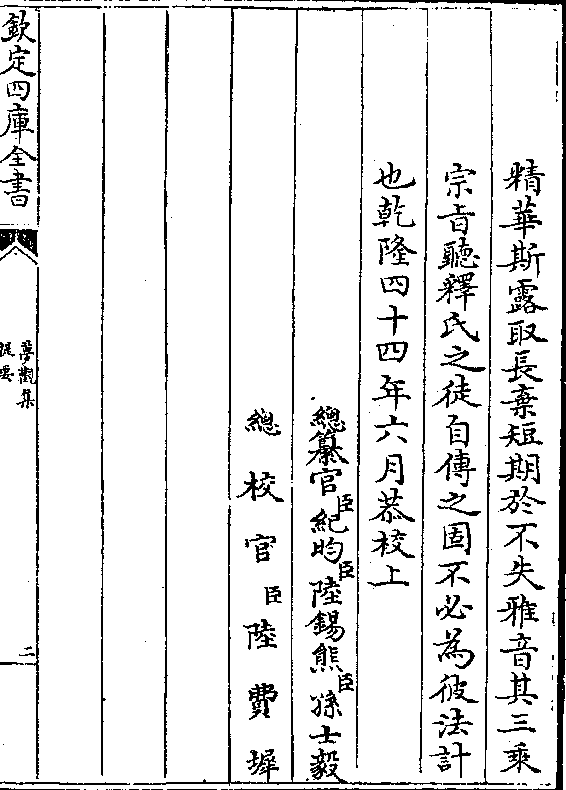 精華斯露取長棄短期於不失雅音其三乘
宗旨聽釋氏之徒自傳之固不必為彼法計
也乾隆四十四年六月恭校上
總纂官臣紀昀臣陸錫熊臣孫士毅
總校官臣陸費墀
欽定四庫全書
夢觀集
提要
二